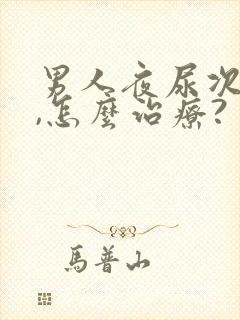 男人夜尿次
,怎麼治療?
馬普山